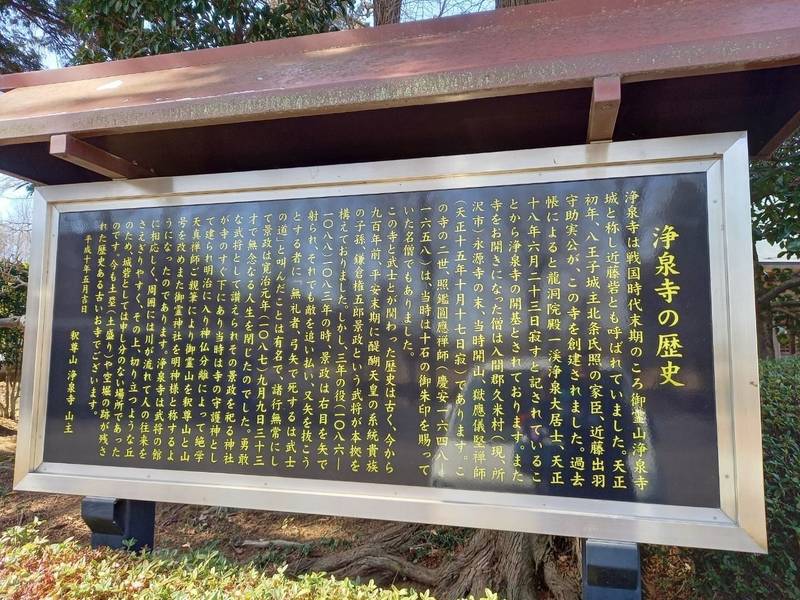 浄泉寺の歴史
浄泉寺は戦国時代末期のころ御霊山浄泉寺
城と称し近藤砦とも呼ばれていました。天正
初年、八王子城主北条氏照の家臣、近藤出羽
守助実公が、この寺を創建されました。過去
帳によると龍洞院殿一渓浄泉大居士、天正
十八年六月二十三日寂すと記されているこ
とから浄泉寺の開基とされております。また
寺をお開きになった僧は入間郡久米村(現、所
沢市)永源寺の末、当時開山、獄應儀堅禅師
(天正十五年十月十七日寂)であります。こ
の寺の二世照鑑圓應禅師(慶安一六四八ー
一六五八)は、当時は十石の御朱印を賜って
いた名僧でもありました。
この寺と武士とが関わった歴史は古く、今から
九百年前、平安末期に醍醐天皇の系統貴族
の子孫、鎌倉権五郎景政という武将が本拠を
構えておりました。しかし、三年の役(一〇八六ー
一〇八八)一〇八三年の時、景政は右目を矢で
射られ、それでも敵を追い払い、又矢を抜こう
とする者に「無礼者、弓矢で死するは武士
の道」と叫んだことは有名で、諸行無常にし
て景政は寛治元年(一〇八七)九月九日三十三
才で無念なる人生を閉じたのでした。勇敢
な武将として讃えられその景政を祀る神社
が寺のすぐ下にあり当時は寺の守護神とし
て建られ明治に入り神仏分離によって絶学
天真禅師ご親筆により御霊山を釈尊山と山
号を改めまた御霊神社を明神様と称するよ
うになったのであります。浄泉寺城は武将の館
に相応しく、周囲には川が流れて人の往来を
さえぎりやすく、その上、切り立つような丘
のため、城砦としては申し分のない場所であった
のです。今も土塁(土盛り)や空堀の跡が残さ
れた歴史ある古いお寺でございます。
平成十年五月吉日
釈尊山 浄泉寺 山主